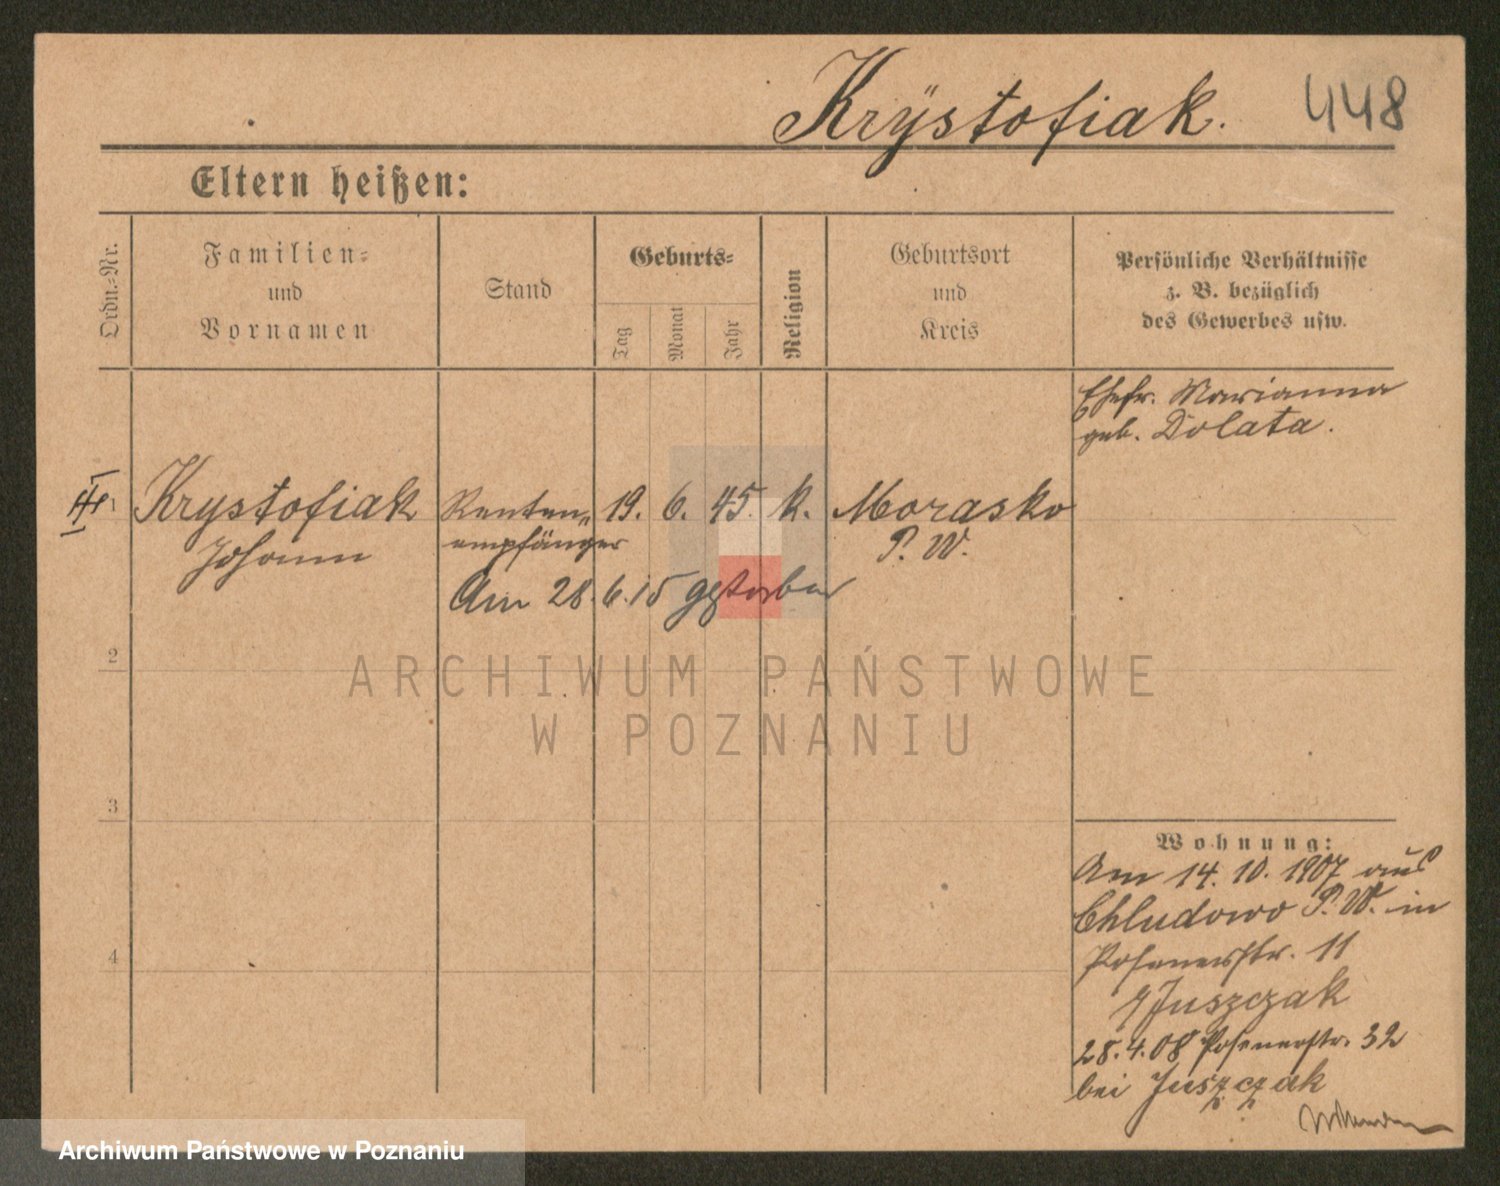 Krÿstofiak. 448
Eltern heißen:
Ordn.-Nr.
Familien-
und
Vornamen
Stand
Geburts-
Tag
Monat
Jahr
Religion
Geburtsort
und
Kreis
Persönliche Verhältnisse
z. B. bezüglich
des Gewerbes usw.
Ehefr. Marianna
geb. Dolata.
1 Krystofiak Renten„ 19. 6. 45. k. Morasko
Johann empfänger P. W.
Am 28.6.15 gestorben
2
3
4
Wohnung:
Am 14. 10. 1907 aus
Chludowo P. W. in
Posenerstr. 11
Juszczak
28.4.08 Posenerstr. 32
bei Juszczak
ARCHIWUM PAŃSTWOWE
W POZNANIU
Archiwum Państwowe w Poznaniu